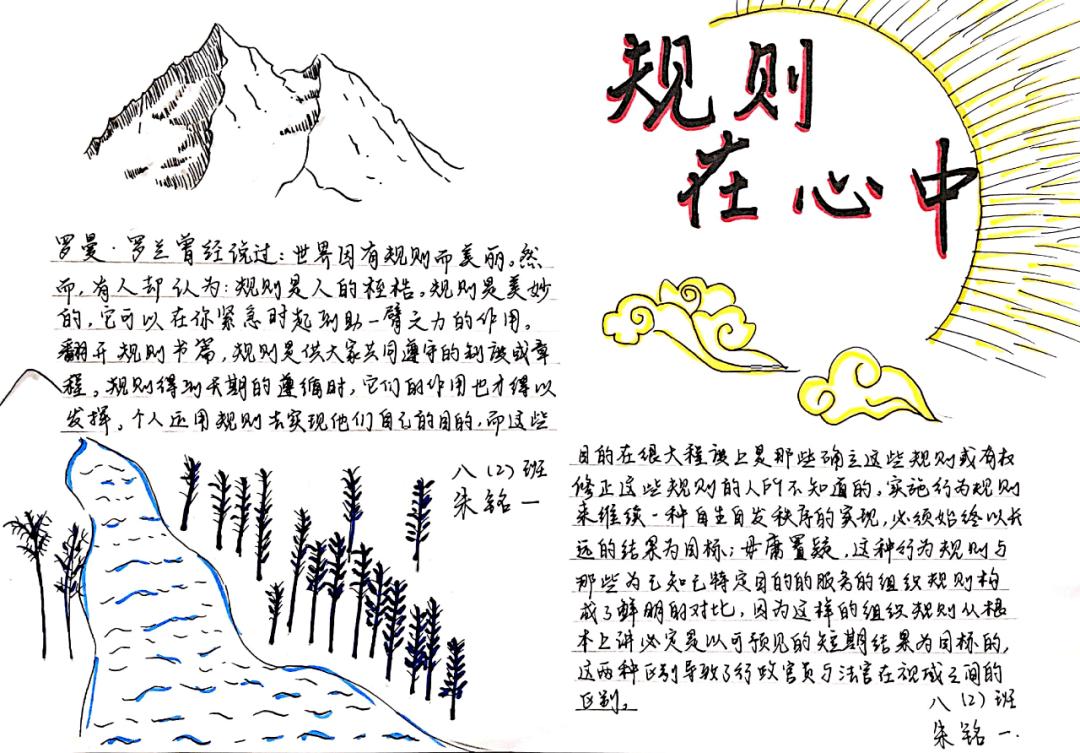 规则
在心中
罗曼·罗兰曾经说过：世界因有规则而美丽。然
而，有人却认为：规则是人的桎梏。规则是美妙
的，它可以在你紧急时起到助一臂之力的作用。
翻开规则书篇，规则是供大家共同遵守的制度或章
程。规则得到长期的遵循时，它们的作用也才得以
发挥。个人运用规则去实现他们自己的目的，而这些
八（2）班
朱铭一
目的在很大程度上是那些确立这些规则或有权
修正这些规则的人所不知道的。实施行为规则
来维续一种自生自发秩序的实现，必须始终以长
远的结果为目标；毋庸置疑，这种行为规则与
那些为已知已特定目的的服务的组织规则构
成了鲜明的对比，因为这样的组织规则从根
本上讲必定是以可预见的短期结果为目标的，
这两种区别导致了行政官员与法官在视域之间的
区别。
八（2）班
朱铭一.